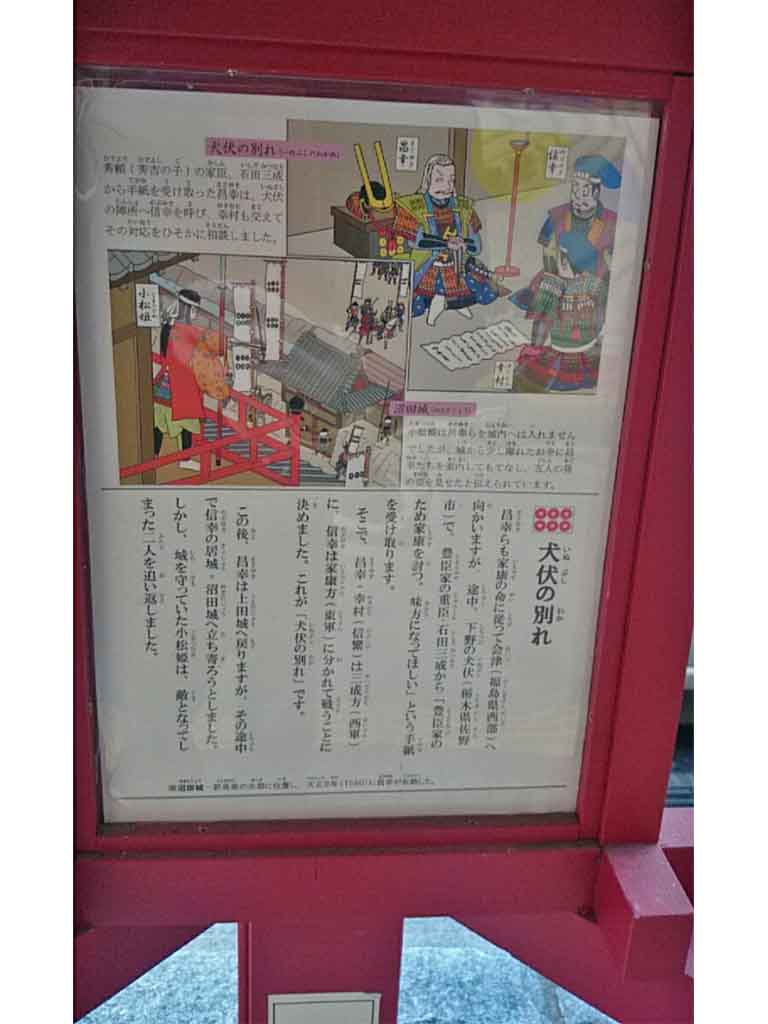 犬伏の別れ(いぬぶしのわかれ)
秀頼(秀吉の子)の家臣、石田三成
から手紙を受け取った昌幸は、犬伏
の陣所へ信幸を呼び、幸村も交えて
その対応をひそかに相談しました。
昌幸
信幸
幸村
小松姫
沼田城
小松姫は昌幸らを城内へは入れません
でしたが、城から少し離れたお寺に昌
幸たちを案内してもてなし、
の姿を見せたと伝えられています。
犬伏の別れ
昌幸らも家康の命に従って会津(福島県西部)へ
向かいますが、途中、下野の犬伏(栃木県佐野
市)で、豊臣家の重臣・石田三成から「豊臣家の
ため家康を討つ。味方になってほしい」という手紙
を受け取ります。
そこで、昌幸・幸村(信繁)は三成方(西軍)
に、信幸は家康方(東軍)に分かれて戦うことに
決めました。これが「犬伏の別れ」です。
この後、昌幸は上田城へ戻りますが、その途中
で信幸の居城・沼田城へ立ち寄ろうとしました。
しかし、城を守っていた小松姫は、敵となってし
まった二人を追い返しました。